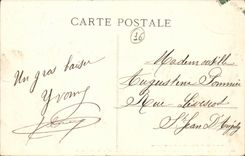 CARTE POSTALE
36
Un gros baiser
Yvonne
Mademoiselle
Augustine Pommier
Rue
St Jean D'Angely